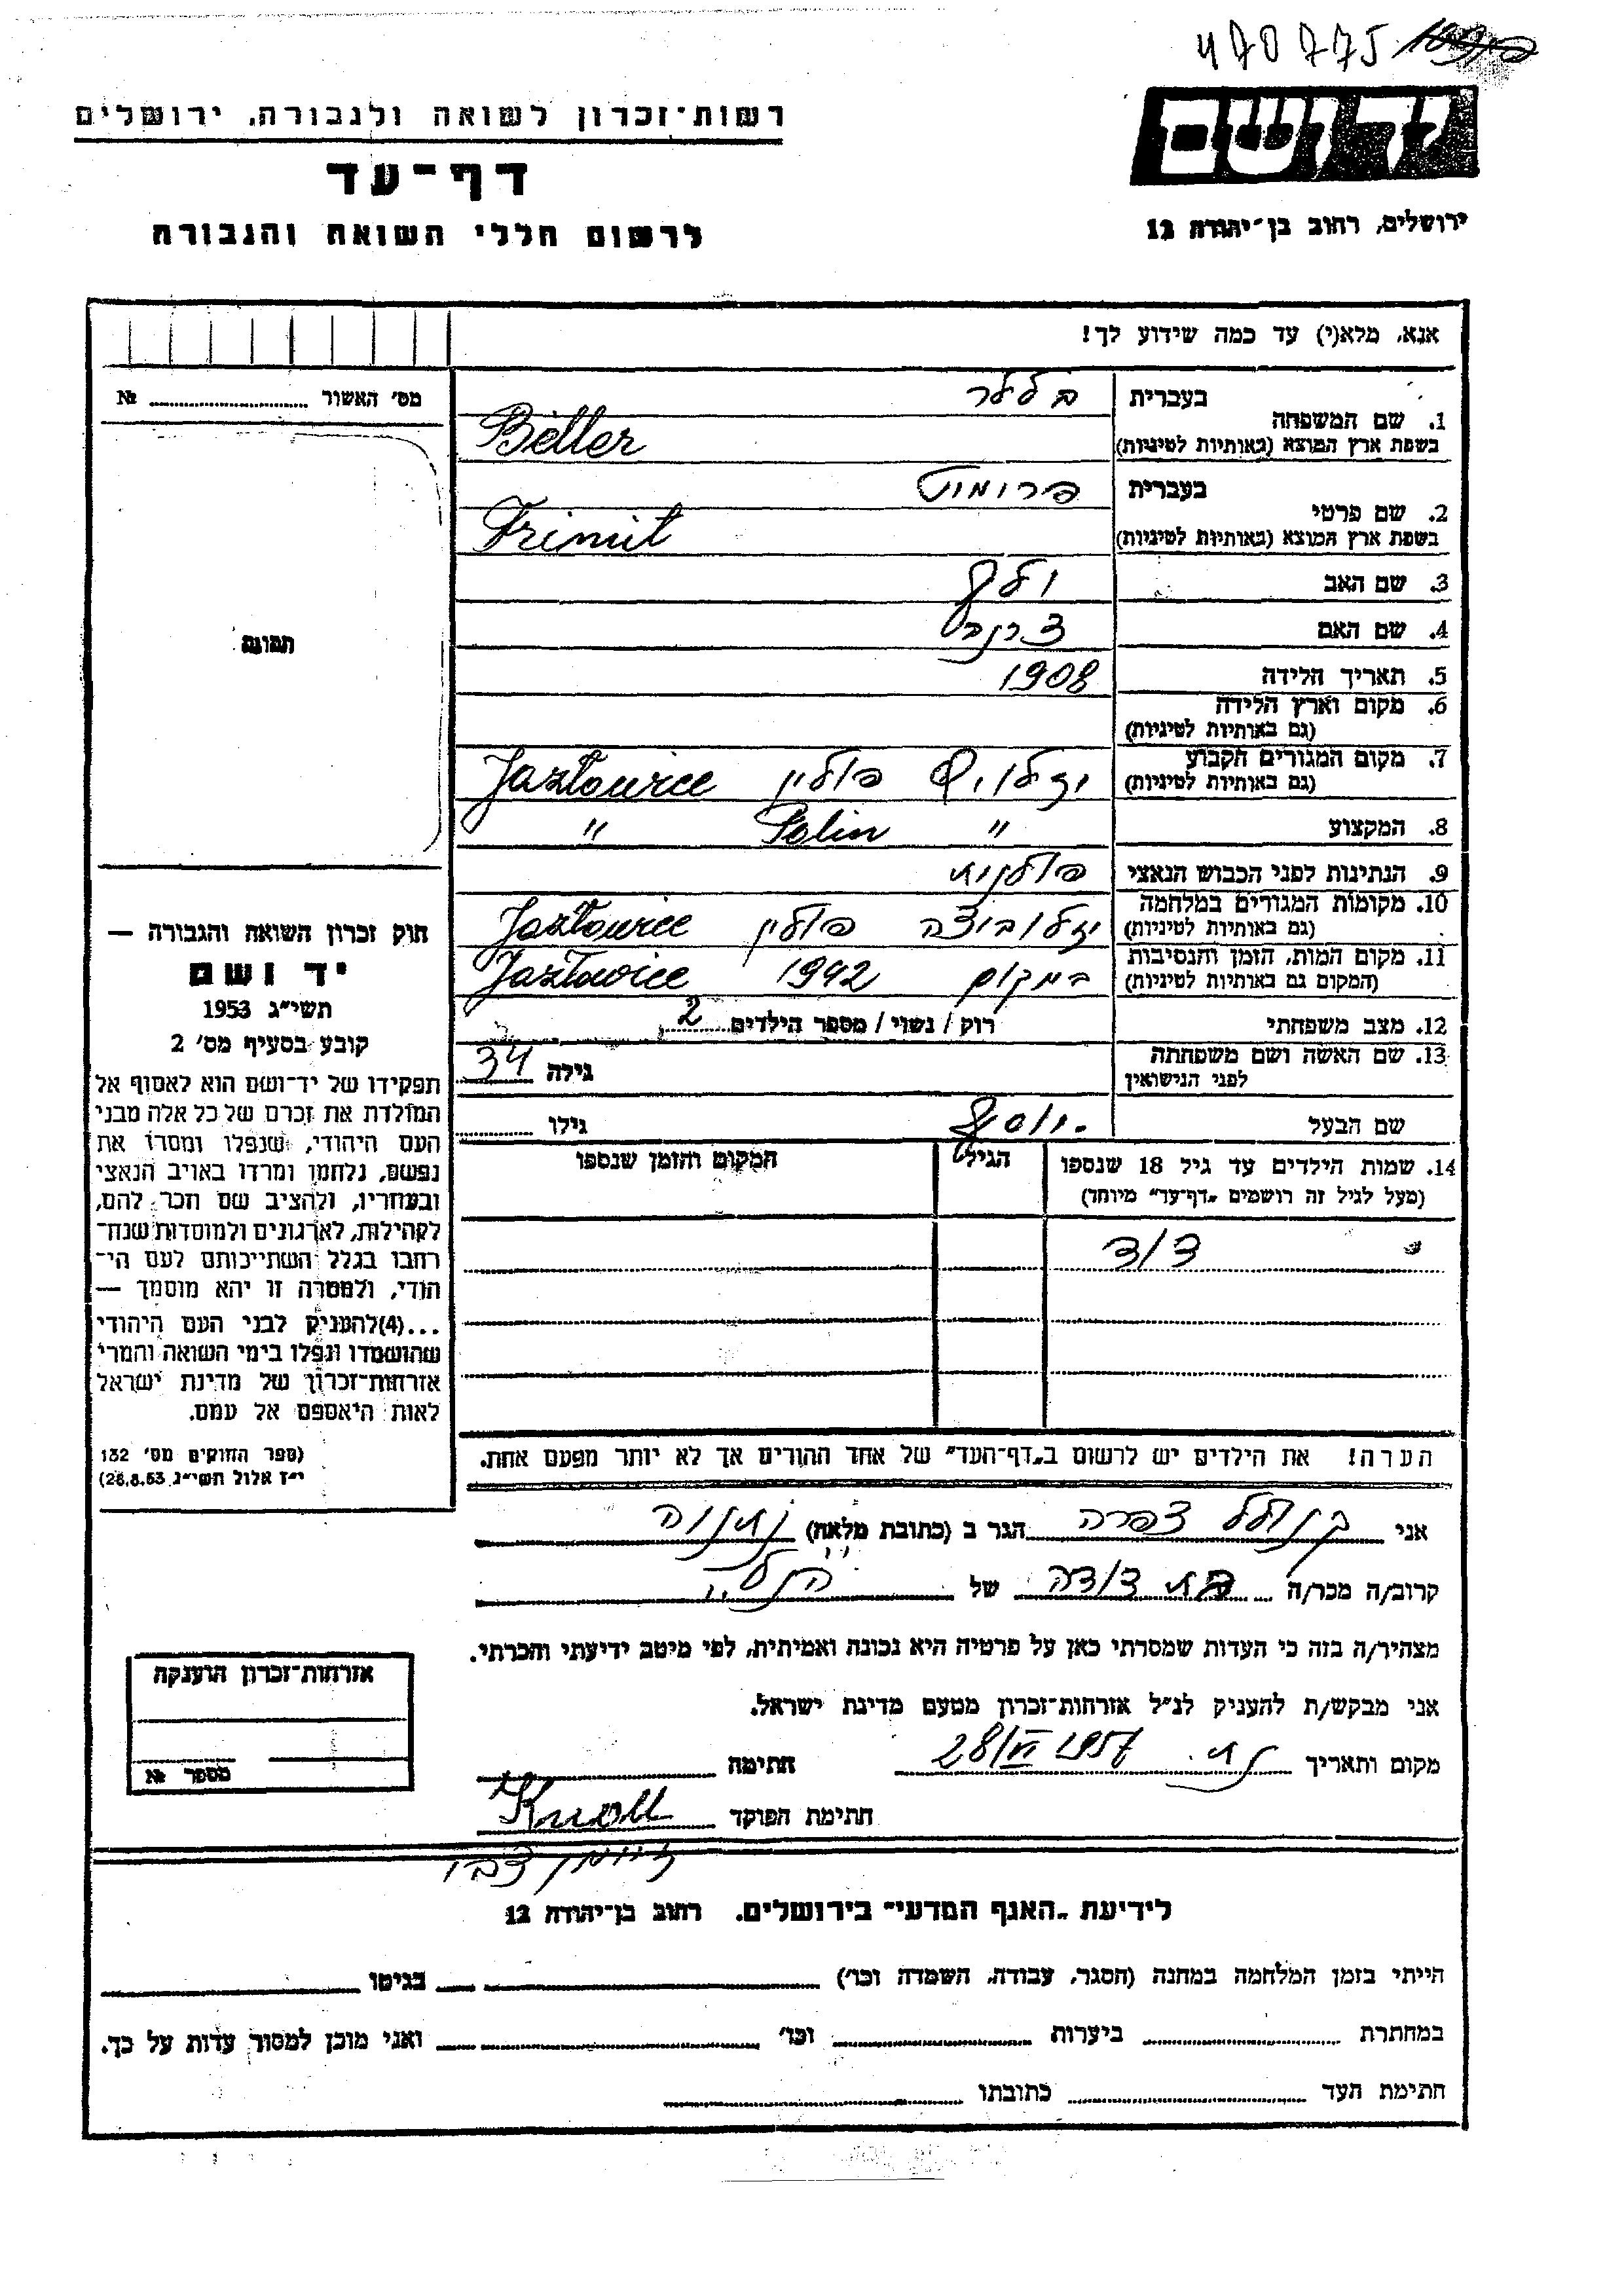 470775
רשות־זכרון לשואה ולגבורה, ירושלים
דף־עד
לרשום חללי השואה והגבורה
ידושם
ירושלים, רחוב בן־יהודה 12
אנא, מלא(י) עד כמה שידוע לך!
מס' האשור № 
תמונה
1. שם המשפחה
בעברית
בשפת ארץ המוצא (באותיות לטיניות)
Beller
2. שם פרטי
בעברית פרומוט
בשפת ארץ המוצא (באותיות לטיניות)
Frimit
3. שם האב
4. שם האם
5. תאריך הלידה 1908
6. מקום וארץ הלידה
(גם באותיות לטיניות)
7. מקום המגורים הקבוע
(גם באותיות לטיניות)
פולין Jazłowice
8. המקצוע
" Polin "
9. הנתינות לפני הכבוש הנאצי פולנית
10. מקומות המגורים במלחמה
(גם באותיות לטיניות)
יזלוביצה פולין Jazłowice
11. מקום המות, הזמן והנסיבות
(המקום גם באותיות לטיניות)
במקום 1942 Jazłowice
12. מצב משפחתי רוק / נשוי / מספר הילדים 2
13. שם האשה ושם משפחתה
לפני הנישואין
גילה 34
שם הבעל יוסף גילו
14. שמות הילדים עד גיל 18 שנספו
(מעל לגיל זה רושמים „דף־עד" מיוחד)
הגיל
המקום והזמן שנספו
הערה! את הילדים יש לרשום ב„דף־העד" של אחד ההורים אך לא יותר מפעם אחת.
חוק זכרון השואה והגבורה —
יד ושם
תשי"ג 1953
קובע בסעיף מס' 2
תפקידו של יד־ושם הוא לאסוף אל
המולדת את זכרם של כל אלה מבני
העם היהודי, שנפלו ומסרו את
נפשם, נלחמו ומרדו באויב הנאצי
ובעוזריו, ולהציב שם וזכר להם,
לקהילות, לארגונים ולמוסדות שנח־
רבו בגלל השתייכותם לעם הי־
הודי, ולמטרה זו יהא מוסמך —
...(4)להעניק לבני העם היהודי
שהושמדו ונפלו בימי השואה והמרי
אזרחות־זכרון של מדינת ישראל
לאות היאספם אל עמם.
(ספר החוקים מס' 132
י"ז אלול תשי"ג 28.8.53)
אני צפרה הגר ב (כתובת מלאה) נתניה
קרוב/ה מכר/ה בת דודה של הנ"ל
מצהיר/ה בזה כי העדות שמסרתי כאן על פרטיה היא נכונה ואמיתית, לפי מיטב ידיעתי והכרתי.
אני מבקש/ת להעניק לנ"ל אזרחות־זכרון מטעם מדינת ישראל.
מקום ותאריך 28/VI 1957 חתימה
חתימת הפוקד
Knoll
אזרחות־זכרון הוענקה
מספר №
לידיעת „האגף המדעי" בירושלים. רחוב בן־יהודה 12
הייתי בזמן המלחמה במחנה (הסגר, עבודה, השמדה וכו') בגיטו
במחתרת ביערות וכו' ואני מוכן למסור עדות על כך.
חתימת העד כתובתו